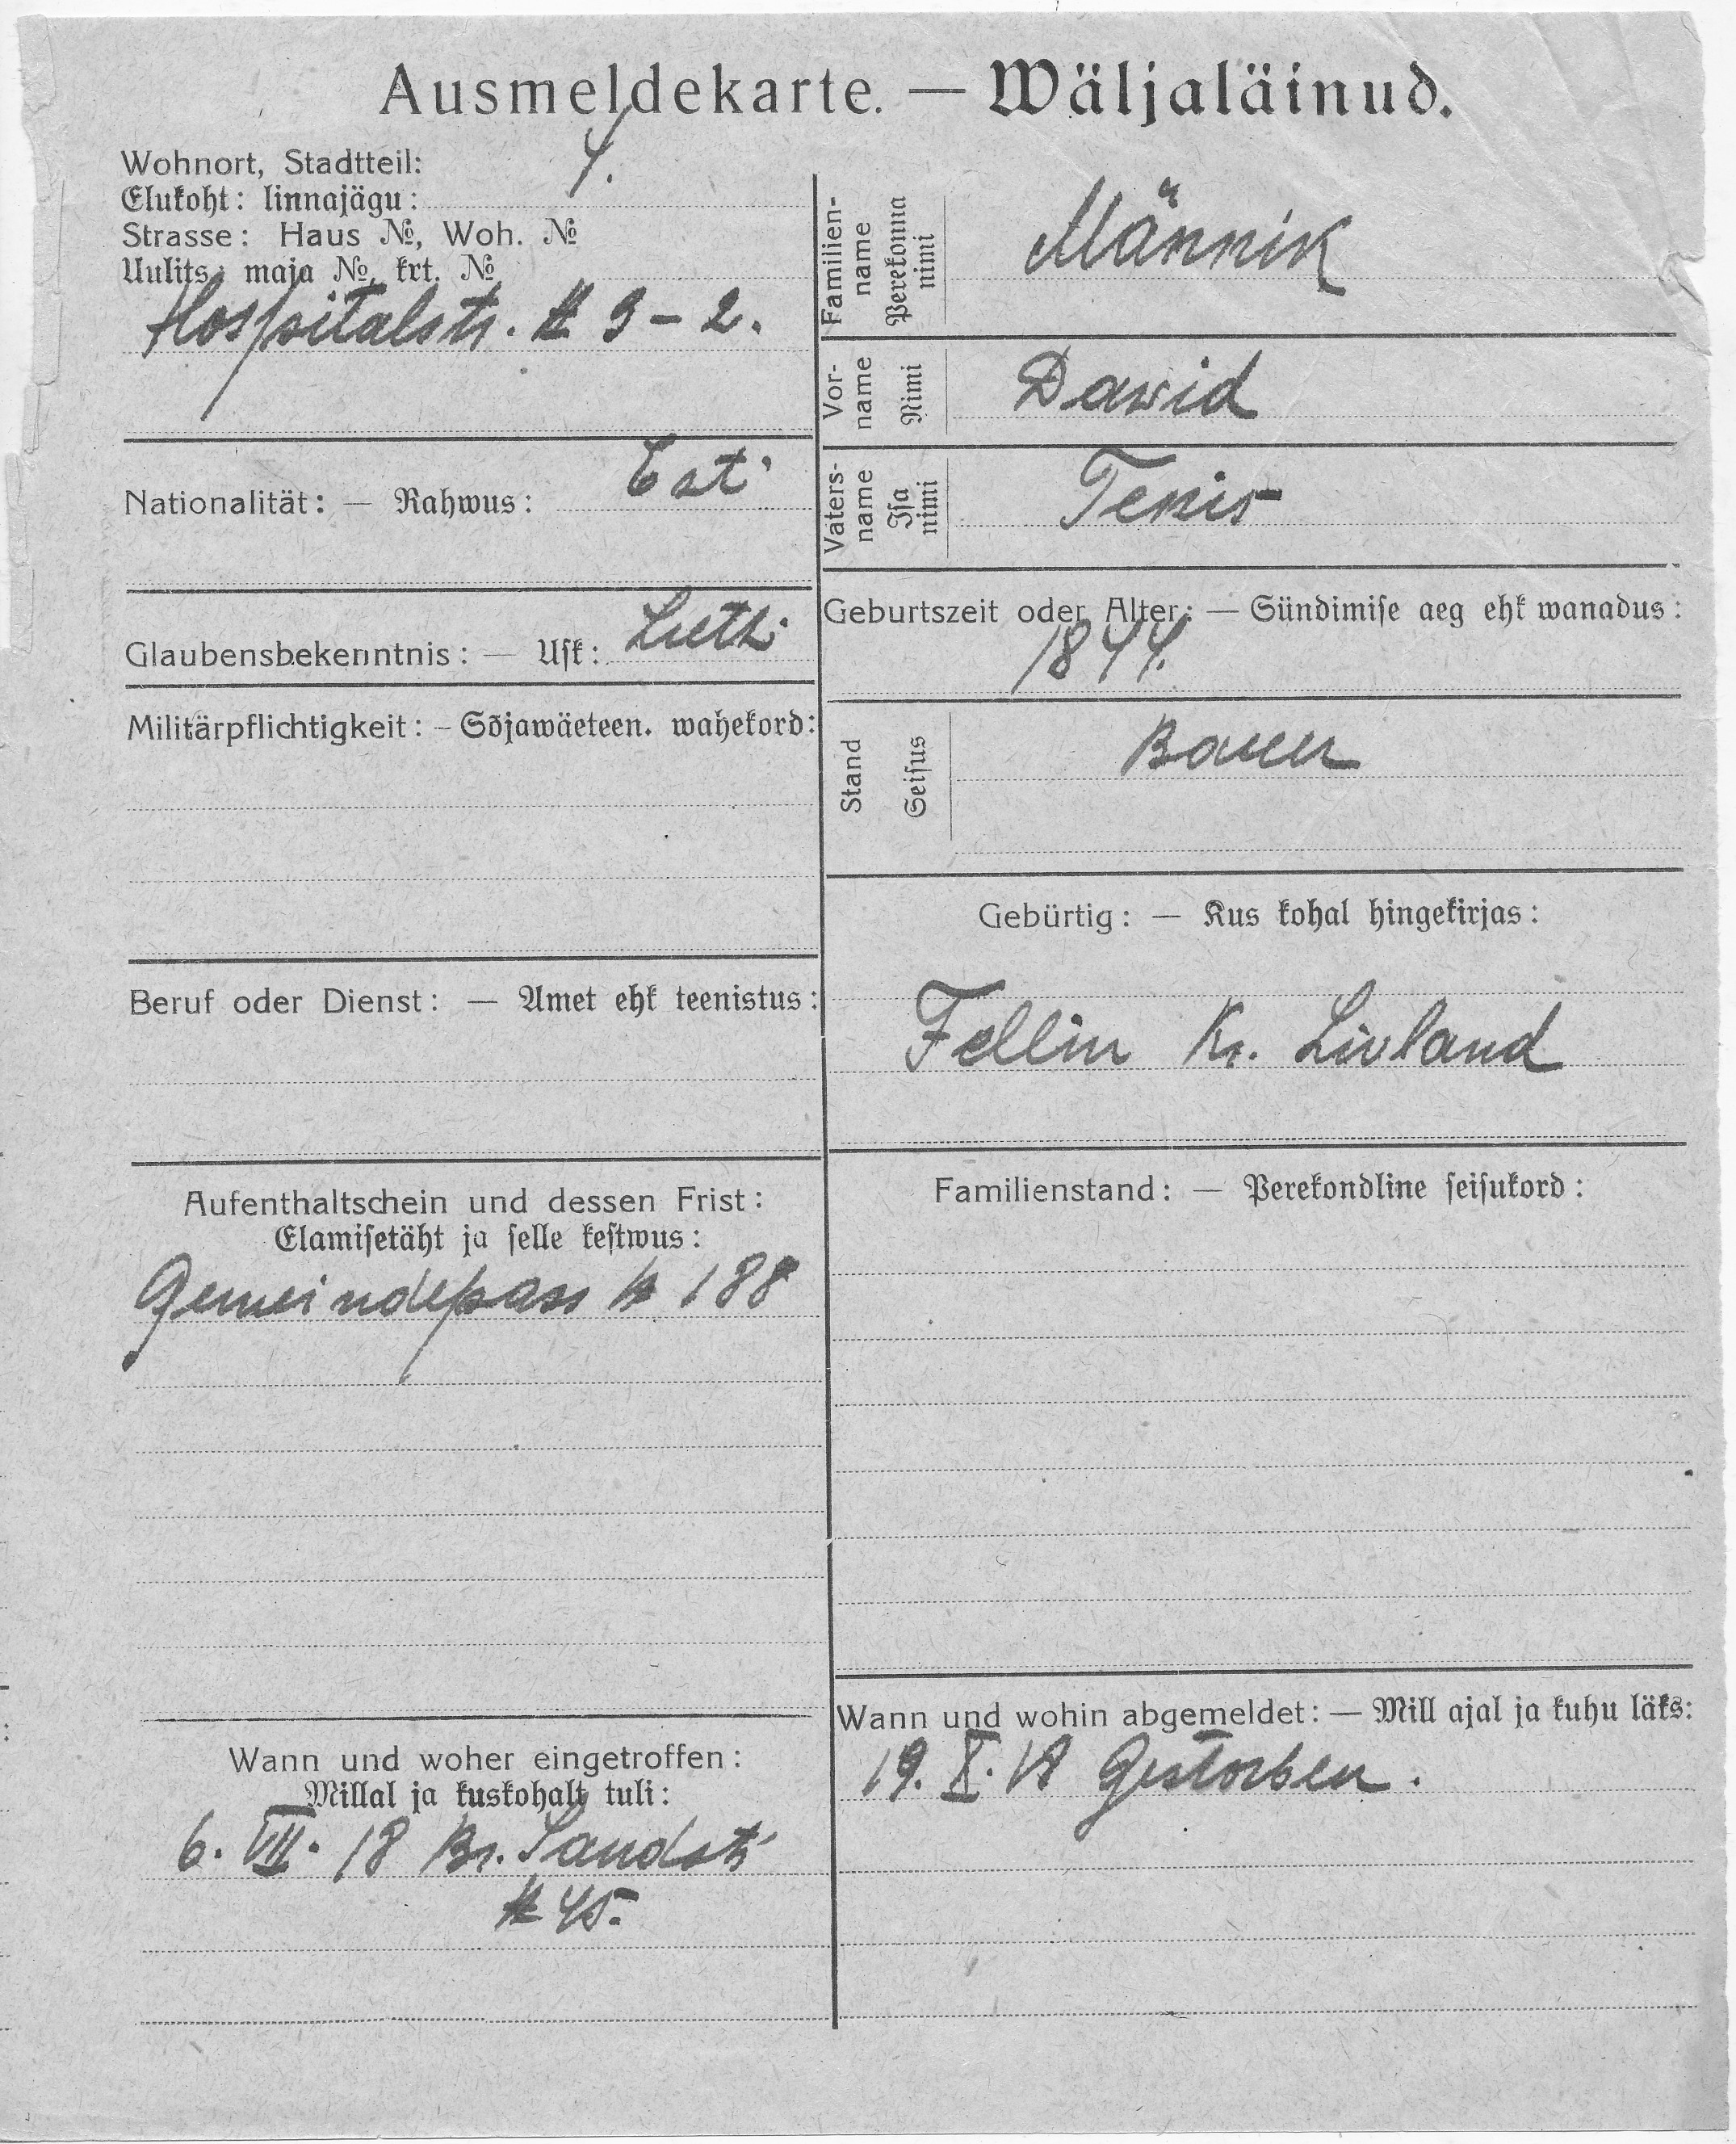 Ausmeldekarte. — Wäljaläinud.
Wohnort, Stadtteil:
Elukoht: linnajägu: 4.
Strasse: Haus №, Woh. №
Uulits: maja №, krt. №
Hospitalstr. № 9 – 2.
Nationalität: — Rahwus: Est.
Glaubensbekenntnis: — Usk: Luth.
Militärpflichtigkeit: – Sõjawäeteen. wahekord:
Beruf oder Dienst: — Amet ehk teenistus:
Aufenthaltschein und dessen Frist:
Elamisetäht ja selle kestwus:
Gemeindepass № 188
Wann und woher eingetroffen:
Millal ja kuskohalt tuli:
6. VII. 18 Br. Sandstr.
№ 45.
Familien-
name
Perekonna
nimi
Männik
Vor-
name
Nimi
Dawid
Vaters-
name
Isa
nimi
Tenis
Geburtszeit oder Alter: — Sündimise aeg ehk wanadus:
1844.
Stand
Seisus
Bauer
Gebürtig: — Kus kohal hingekirjas:
Fellin Kr. Livland
Familienstand: — Perekondline seisukord:
Wann und wohin abgemeldet: — Mill ajal ja kuhu läks:
19. X. 18 Gestorben.